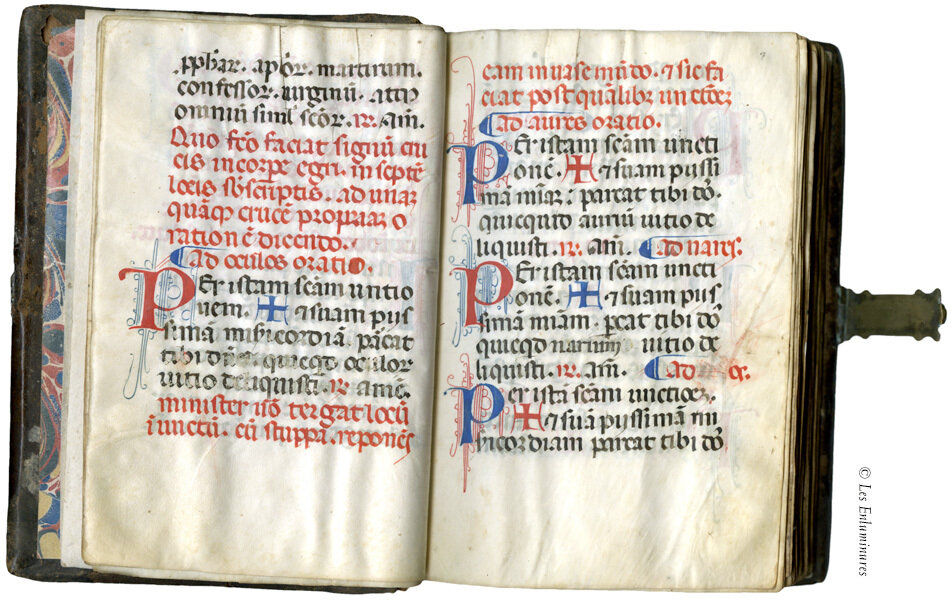 .pphar. aplor. martirum.
confessor. virginū. atq;
omniū simł scōr. ir. am̄.
Quo fcō faciat signū cru
cis in corpe egri. in septē
locis sb̄scriptis. ad unāq;
quāq; crucē propriaz o
rationē dicendo.
ad oculos oratio.
Per istam scām unctio
nem. ✠ ⁊ suam piis
simā misicordiā. parcat
tibi dn̄s quicqd oculor
uitio deliquisti. ir. amē.
minister uō tergat locū
īunctū. cū stuppa. reponēs
eam in uase mūdo. ⁊ sic fa
ciat post quālibz unctōez
ad aures oratio.
Per istam scām uncti
onē. ✠ ⁊ suam piissi
mā miāz. parcat tibi dō.
quicquid auriū uitio de
liquisti. ir. am̄. ad nares.
Per istam scām uncti
onē. ✠ ⁊ suam piis
simā miam. pcat tibi dō
quicqd narium uitio de
liquisti. ir. am̄. ad
Per istā scām unctioēz.
✠ ⁊ suā piissimā mi
sicordiam parcat tibi dō
© Les Enluminures